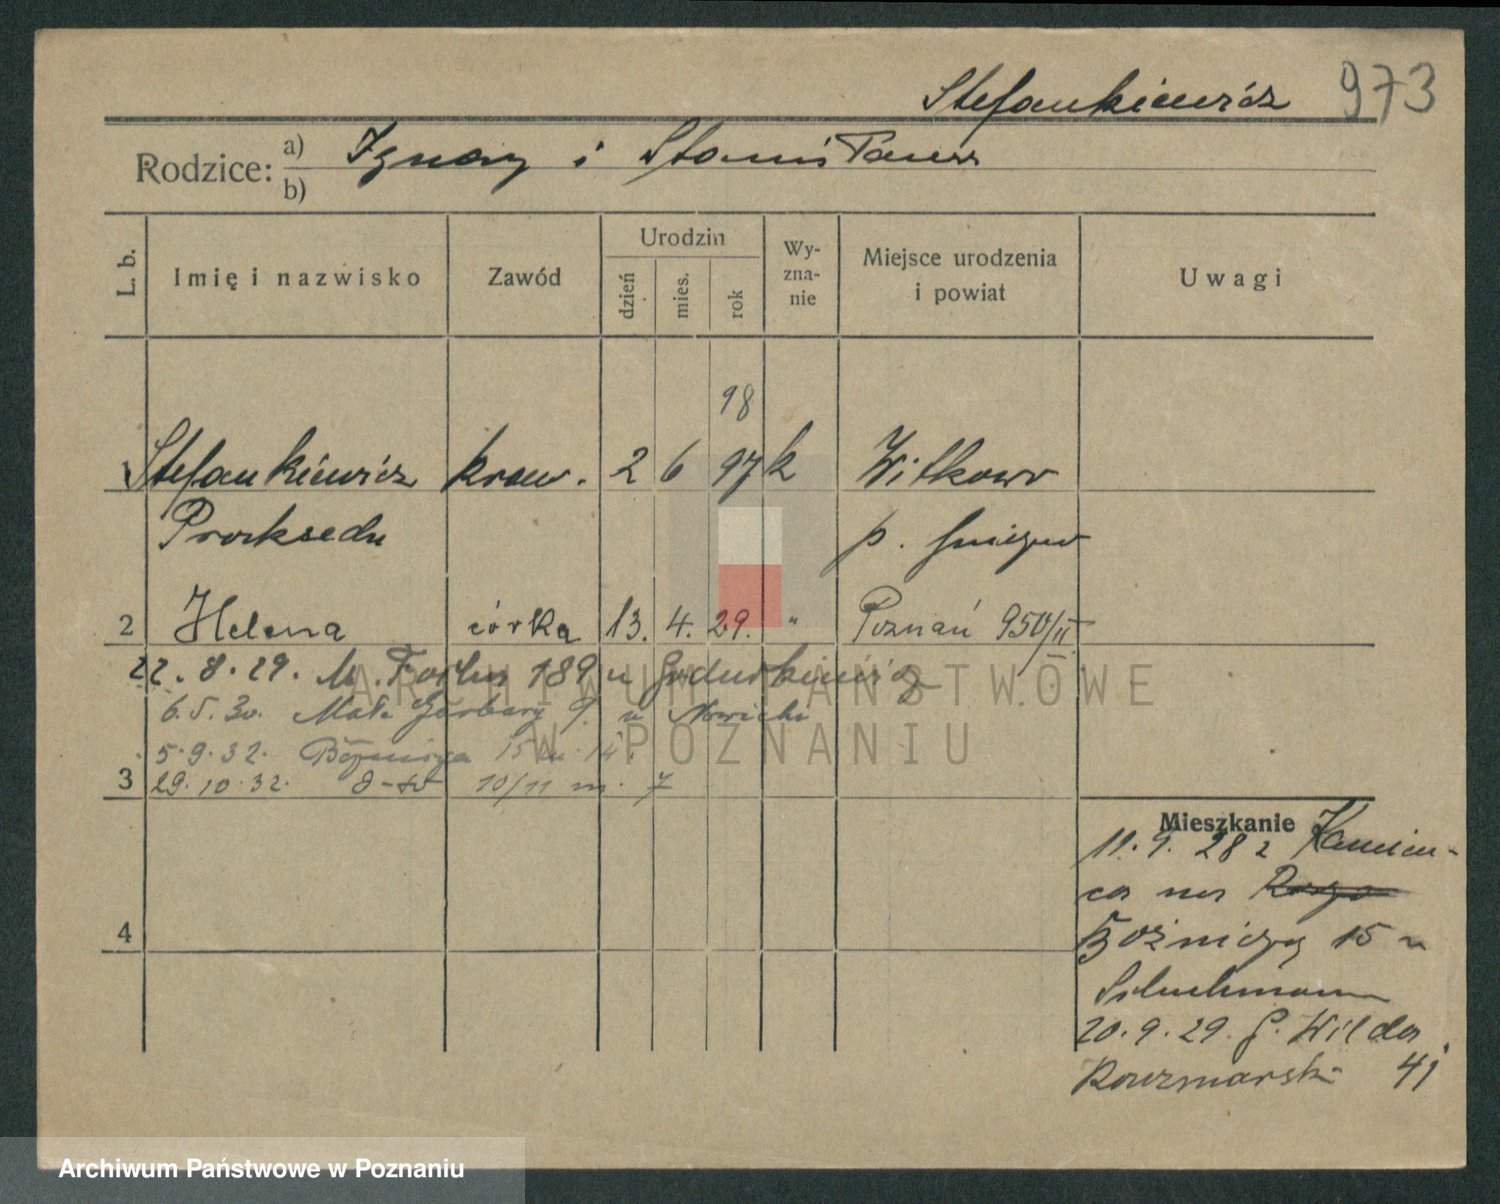 Stefankiewicz 973
Rodzice: a) Ignacy i Stanisława
b)
L. b. Imię i nazwisko Zawód Urodzin dzień mies. rok Wyznanie Miejsce urodzenia i powiat Uwagi
98
1 Stefankiewicz kraw. 2 6 97 k Witkowo
Prakseda p. Gniezno
2 Helena córka 13. 4. 29. " Poznań 950/II
22. 8. 29. M. 189 u
6.5.30. Małe Garbary 9. u Nowicki
5.9.32. Bóżnicza 15 m. 14.
3 29.10.32. d-to 10/11 m. 7
Mieszkanie
11. 9. 28 z Kamień-
ca
4 Bóżniczej 15 u
20. 9. 29. G. Wilda
41
ARCHIWUM PAŃSTWOWE
W POZNANIU
Archiwum Państwowe w Poznaniu